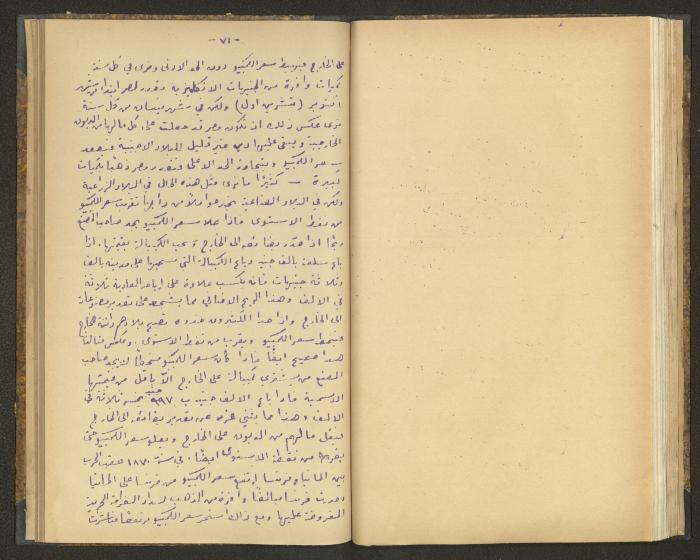 - ٧١ -
على الخارج فيهبط سعر الكمبيو دون الحد الادنى ونرى في كل سنة
كميات وافرة من الجنيهات الانكليزية تقدر لمصر ابتداء من شهر
اكتوبر (تشرين اول) ولكن في شهر نيسان من كل سنة
نرى عكس ذلك اذ تكون مصر قد حصلت على كل ما لها من الديون
الخارجية ويبقى عليها دين غير قليل للبلاد الاجنبية فيصعد
سعر الكمبيو ويتجاوز الحد الاعلى فتصدر مصر ذهبا بكميات
كبيرة - كثيرًا ما نرى مثل هذه الحال في البلاد الزراعية
ولكن في البلاد الصناعية نجد عواملا من دأبها تقريب سعر الكمبيو
من نقطة الاستوى فاذا علا سعر الكمبيو يجد صاحب المصنع
ربحًا اذا صدّر بضائعه الى الخارج وسحب الكمبيالة بقيمتها. اذا
باع سلعة بالف جنيه وباع الكمبيالة التي سحبها على مدينه بالف
وثلاثة جنيهات فانه يكسب علاوة على ارباحه العادية ثلاثة
في الالف وهذا الربح الاضافي مما يشجعه على تصدير مصنوعات
الى الخارج واذا حذا الكثيرون حذوه تصبح بلادهم دائنة للخارج
فينحط سعر الكمبيو ويقرب من نقطة الاستوى. وعكس مثالنا
هذا صحيح ايضًا فاذا كان سعر الكمبيو منحطًا لا يجد صاحب
المصنع من يشتري كمبيالة على الخارج الا باقل من قيمتها
الاسمية فاذا باع الالف جنيه ب ٩٩٧ جنيه خسر ثلاثة في
الالف وهذا مما يثني عزمه عن تصدير بضائعه الى الخارج
فيقل ما لهم من الديون على الخارج ويعلو سعر الكمبيو حتى
يقرب من نقطة الاستوى ايضًا. في سنة ١٨٧٠ عقب الحرب
بين المانيا وفرنسا ارتفع سعر الكمبيو من فرنسا على المانيا
فدفعت فرنسا مبالغًا وافرة من الذهب لسداد الغرامة الحربية
المفروضة عليها ومع ذلك استمر سعر الكمبيو مرتفعًا